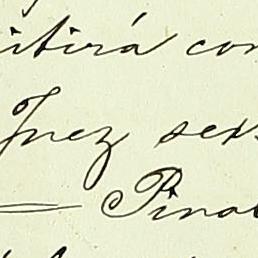 itirá con
Juez sex
Pina